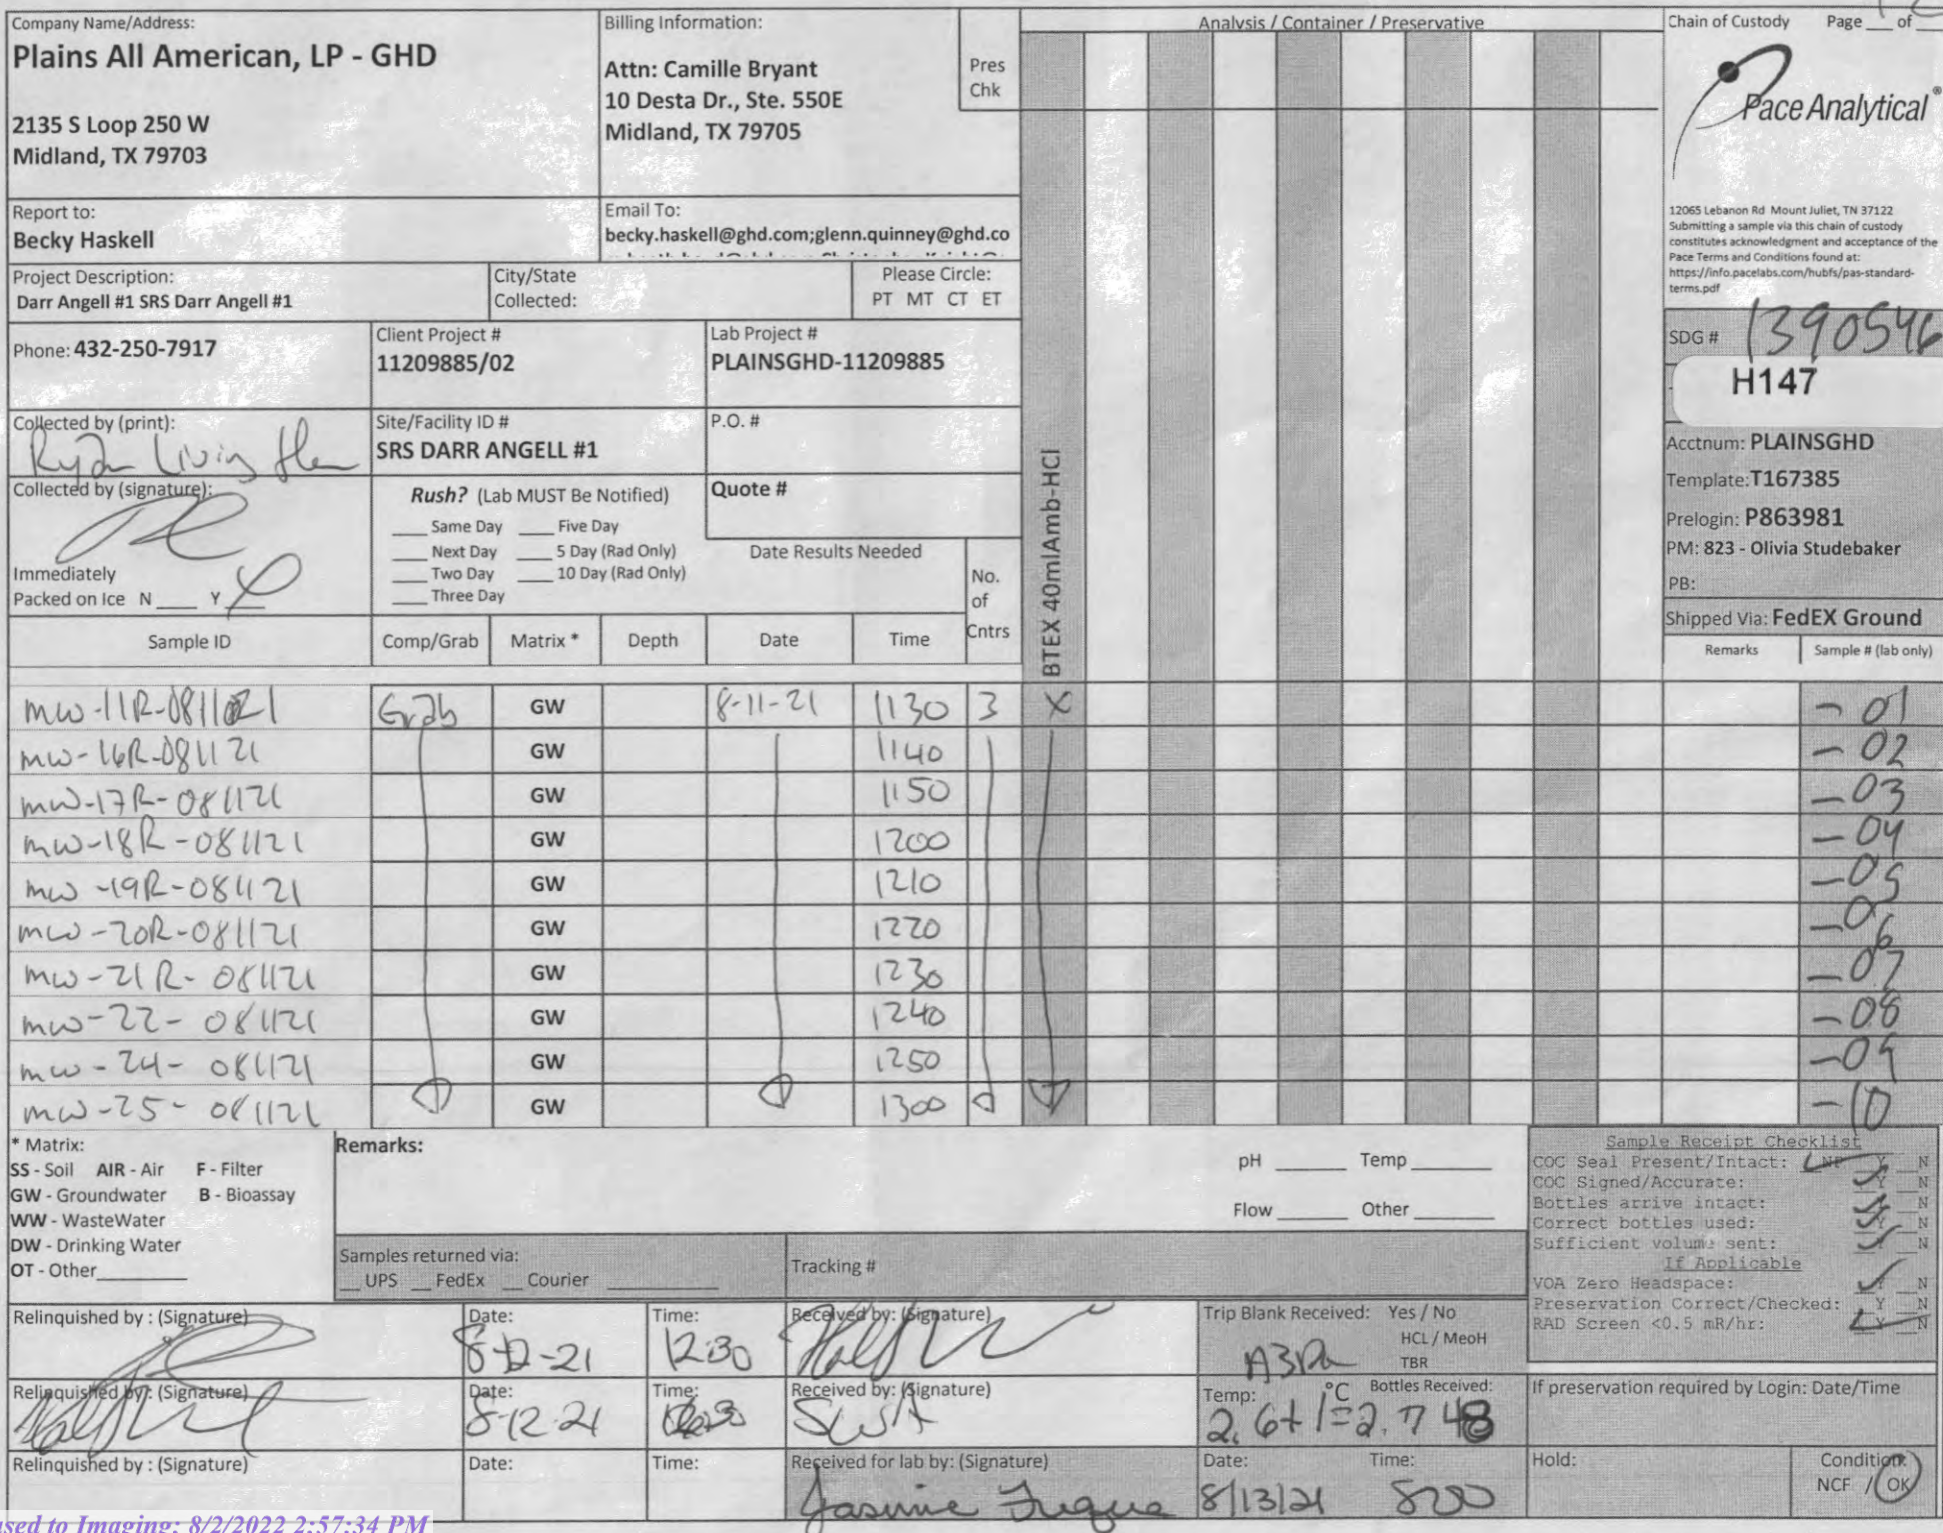 Company Name/Address:
Plains All American, LP - GHD
2135 S Loop 250 W
Midland, TX 79703
Billing Information:
Attn: Camille Bryant
10 Desta Dr., Ste. 550E
Midland, TX 79705
Pres
Chk
Analysis / Container / Preservative
Chain of Custody Page ___ of ___
Pace Analytical®
12065 Lebanon Rd Mount Juliet, TN 37122
Submitting a sample via this chain of custody
constitutes acknowledgment and acceptance of the
Pace Terms and Conditions found at:
https://info.pacelabs.com/hubfs/pas-standard-
terms.pdf
Report to:
Becky Haskell
Email To:
becky.haskell@ghd.com;glenn.quinney@ghd.co
Project Description:
Darr Angell #1 SRS Darr Angell #1
City/State
Collected:
Please Circle:
PT MT CT ET
Phone: 432-250-7917
Client Project #
11209885/02
Lab Project #
PLAINSGHD-11209885
SDG # 1390546
H147
Collected by (print):
Ryan Livingston
Site/Facility ID #
SRS DARR ANGELL #1
P.O. #
Acctnum: PLAINSGHD
Template: T167385
Prelogin: P863981
PM: 823 - Olivia Studebaker
PB:
Shipped Via: FedEX Ground
Collected by (signature):
Immediately
Packed on Ice N ___ Y ___
Rush? (Lab MUST Be Notified)
___ Same Day ___ Five Day
___ Next Day ___ 5 Day (Rad Only)
___ Two Day ___ 10 Day (Rad Only)
___ Three Day
Quote #
Date Results Needed
No.
of
Cntrs
BTEX 40mlAmb-HCl
Sample ID Comp/Grab Matrix * Depth Date Time Remarks Sample # (lab only)
MW-11R-081121 Grab GW 8-11-21 1130 3 X -01
MW-16R-081121 GW 1140 -02
MW-17R-081121 GW 1150 -03
MW-18R-081121 GW 1200 -04
MW-19R-081121 GW 1210 -05
MW-20R-081121 GW 1220 -06
MW-21R-081121 GW 1230 -07
MW-22-081121 GW 1240 -08
MW-24-081121 GW 1250 -09
MW-25-081121 GW 1300 -10
* Matrix:
SS - Soil AIR - Air F - Filter
GW - Groundwater B - Bioassay
WW - WasteWater
DW - Drinking Water
OT - Other
Remarks:
pH ___ Temp ___
Flow ___ Other ___
Samples returned via:
__ UPS __ FedEx __ Courier
Tracking #
Sample Receipt Checklist
COC Seal Present/Intact: NP Y N
COC Signed/Accurate: Y N
Bottles arrive intact: Y N
Correct bottles used: Y N
Sufficient volume sent: Y N
If Applicable
VOA Zero Headspace: Y N
Preservation Correct/Checked: Y N
RAD Screen <0.5 mR/hr: Y N
Relinquished by : (Signature) Date: 8-12-21 Time: 12:30 Received by: (Signature)
Trip Blank Received: Yes / No
HCL / MeoH
TBR
Relinquished by : (Signature) Date: 8-12-21 Time: Received by: (Signature)
Temp: °C Bottles Received:
2.6+.1=2.7 48
If preservation required by Login: Date/Time
Relinquished by : (Signature) Date: Time: Received for lab by: (Signature)
Jasmine
Date: 8/13/21 Time: 800
Hold:
Condition:
NCF / OK
sed to Imaging: 8/2/2022 2:57:34 PM